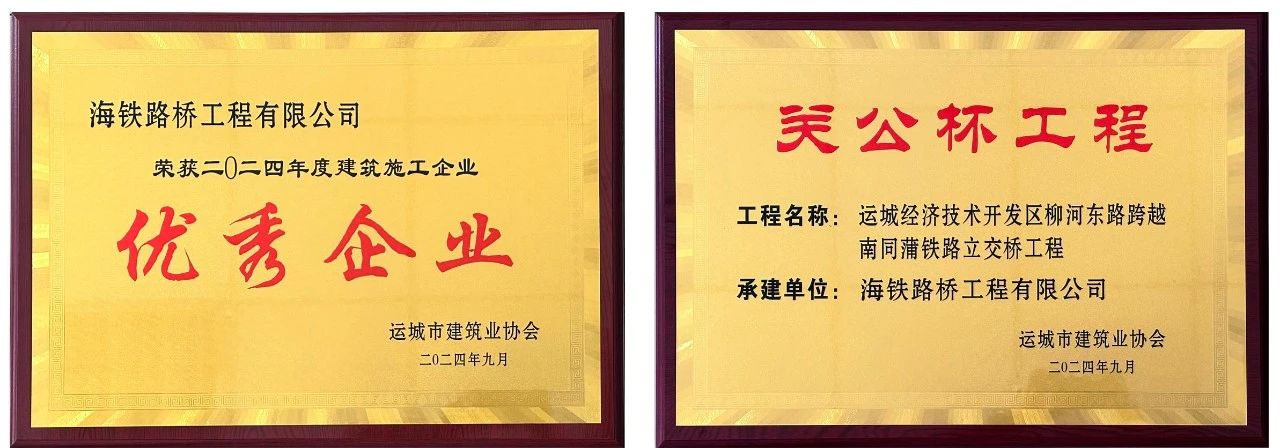 海铁路桥工程有限公司
荣获二〇二四年度建筑施工企业
优秀企业
运城市建筑业协会
二〇二四年九月
关公杯工程
工程名称：运城经济技术开发区柳河东路跨越
南同蒲铁路立交桥工程
承建单位：海铁路桥工程有限公司
运城市建筑业协会
二〇二四年九月